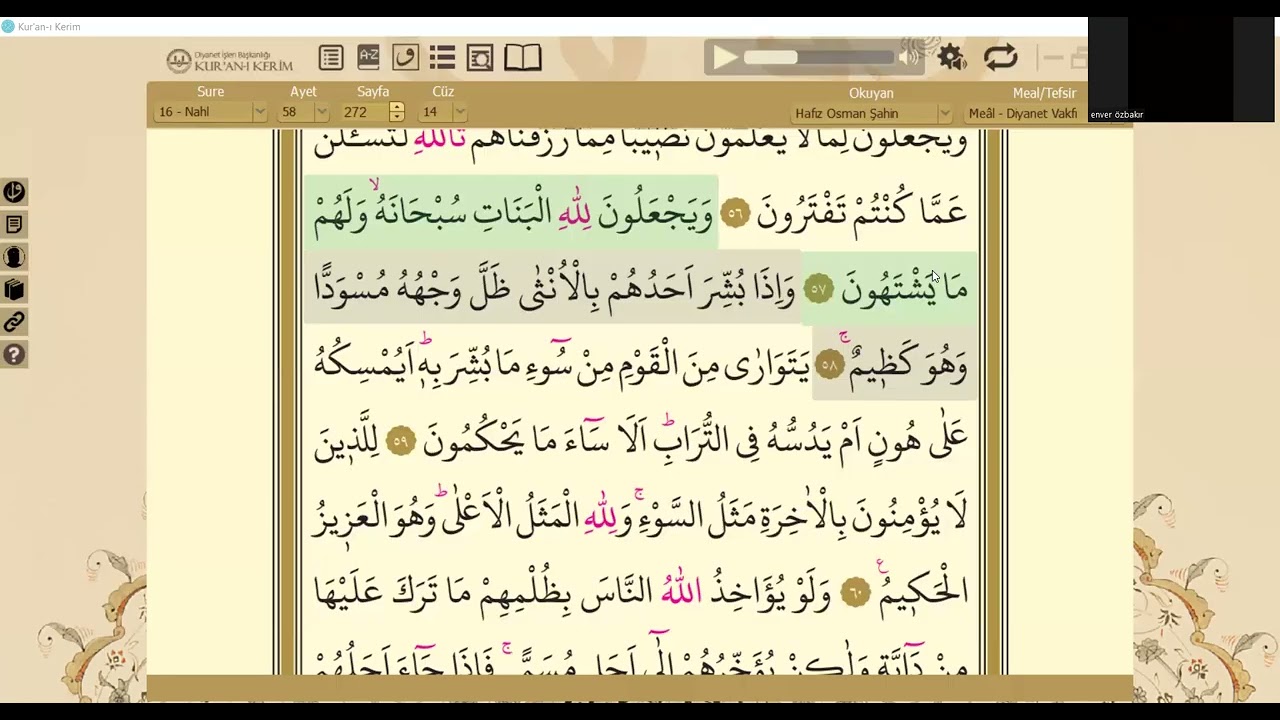 Kur'an-ı Kerim
Diyanet İşleri Başkanlığı
KUR'AN-I KERİM
A-Z
enver özbakır
Sure Ayet Sayfa Cüz Okuyan Meal/Tefsir
16 - Nahl 58 272 14 Hafız Osman Şahin Meâl - Diyanet Vakfı
وَيَجْعَلُونَ لِمَا لَا يَعْلَمُونَ نَص۪يبًا مِمَّا رَزَقْنَاهُمْ تَاللّٰهِ لَتُسْـَٔلُنَّ
عَمَّا كُنْتُمْ تَفْتَرُونَ ﴿٥٦﴾ وَيَجْعَلُونَ لِلّٰهِ الْبَنَاتِ سُبْحَانَهُۙ وَلَهُمْ
مَا يَشْتَهُونَ ﴿٥٧﴾ وَاِذَا بُشِّرَ اَحَدُهُمْ بِالْاُنْثٰى ظَلَّ وَجْهُهُ مُسْوَدًّا
وَهُوَ كَظ۪يمٌۚ ﴿٥٨﴾ يَتَوَارٰى مِنَ الْقَوْمِ مِنْ سُٓوءِ مَا بُشِّرَ بِه۪ۜ اَيُمْسِكُهُ
عَلٰى هُونٍ اَمْ يَدُسُّهُ فِى التُّرَابِۜ اَلَا سَٓاءَ مَا يَحْكُمُونَ ﴿٥٩﴾ لِلَّذ۪ينَ
لَا يُؤْمِنُونَ بِالْاٰخِرَةِ مَثَلُ السَّوْءِۚ وَلِلّٰهِ الْمَثَلُ الْاَعْلٰىۜ وَهُوَ الْعَز۪يزُ
الْحَك۪يمُ۟ ﴿٦٠﴾ وَلَوْ يُؤَاخِذُ اللّٰهُ النَّاسَ بِظُلْمِهِمْ مَا تَرَكَ عَلَيْهَا
مِنْ دَٓابَّةٍ وَلٰكِنْ يُؤَخِّرُهُمْ اِلٰٓى اَجَلٍ مُسَمًّىۚ فَاِذَا جَٓاءَ اَجَلُهُمْ